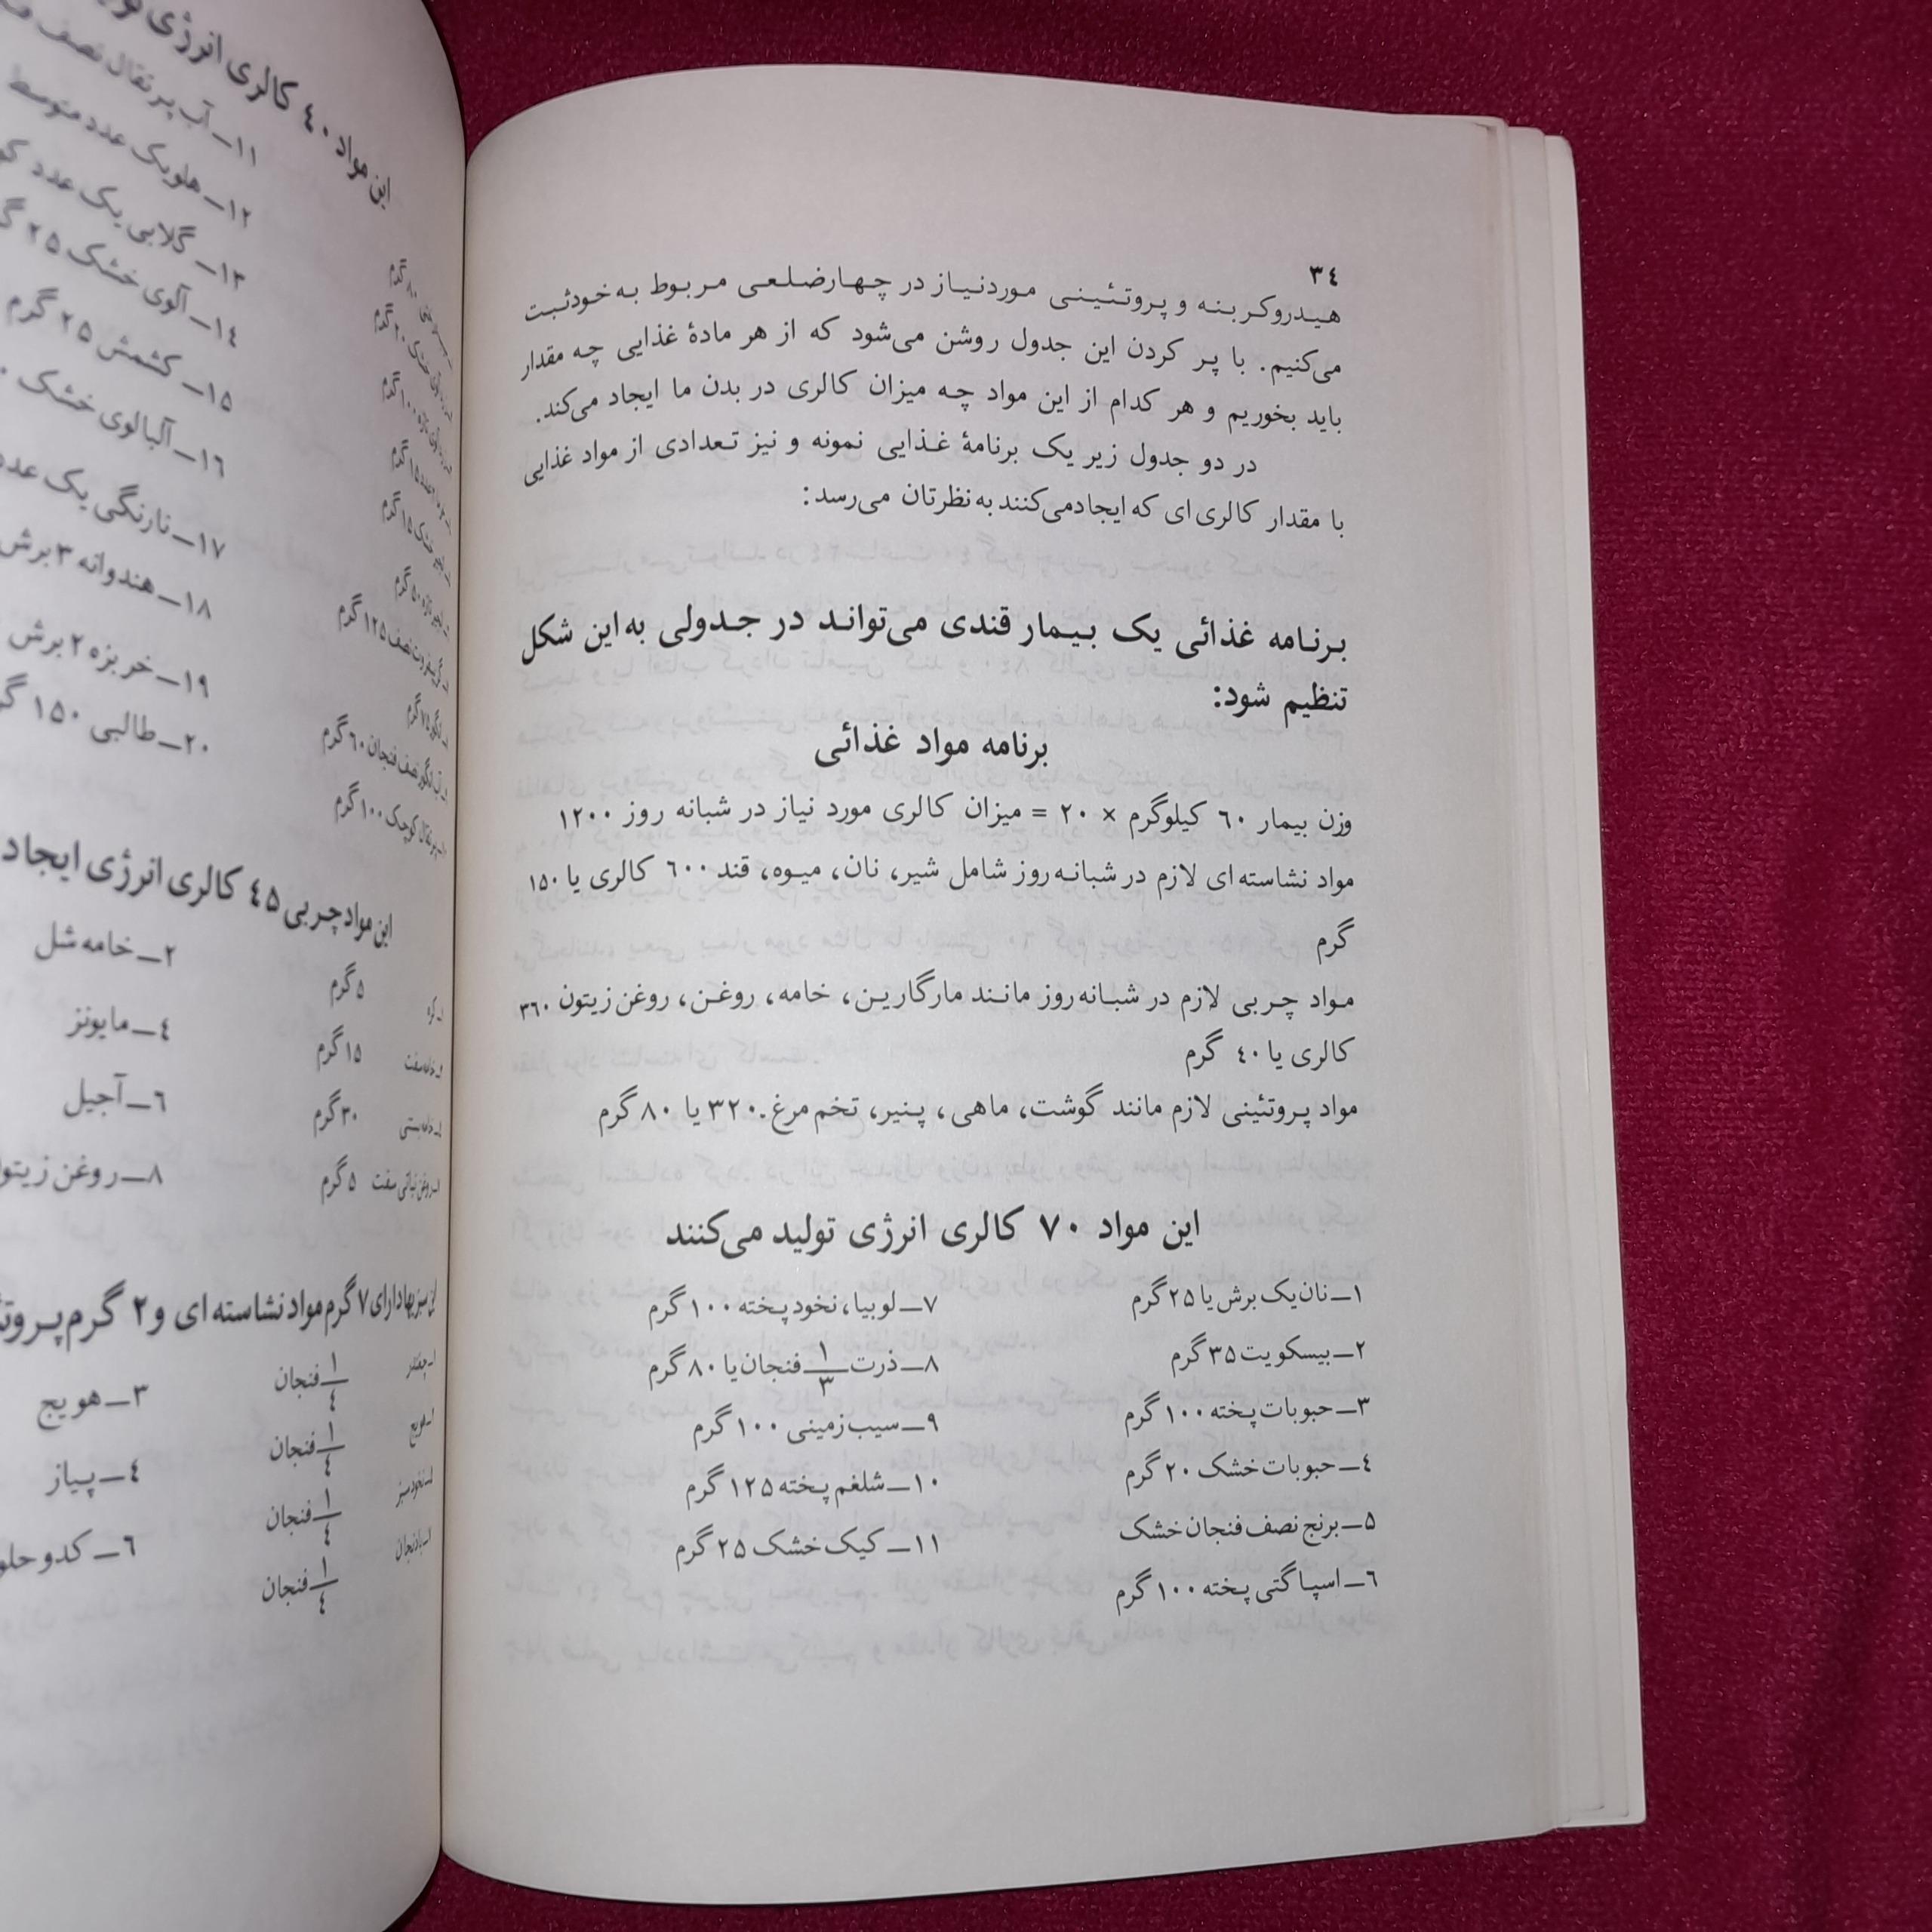 ۳٤
هیدروکربنه و پروتئینی موردنیاز در چهارضلعی مربوط به خودثبت
می‌کنیم. با پر کردن این جدول روشن می‌شود که از هر مادهٔ غذایی چه مقدار
باید بخوریم و هر کدام از این مواد چه میزان کالری در بدن ما ایجاد می‌کند.
در دو جدول زیر یک برنامهٔ غذایی نمونه و نیز تعدادی از مواد غذایی
با مقدار کالری ای که ایجادمی‌کنند به نظرتان می‌رسد:
برنامه غذائی یک بیمار قندی می‌تواند در جدولی به این شکل
تنظیم شود:
برنامه مواد غذائی
وزن بیمار ٦۰ کیلوگرم × ۲۰ = میزان کالری مورد نیاز در شبانه روز ۱۲۰۰
مواد نشاسته ای لازم در شبانه روز شامل شیر، نان، میوه، قند ٦۰۰ کالری یا ۱۵۰
گرم
مواد چربی لازم در شبانه روز مانند مارگارین، خامه، روغن، روغن زیتون ۳٦۰
کالری یا ٤۰ گرم
مواد پروتئینی لازم مانند گوشت، ماهی، پنیر، تخم مرغ. ۳۲۰ یا ۸۰ گرم
این مواد ۷۰ کالری انرژی تولید می‌کنند
۱ــ نان یک برش یا ۲۵ گرم
۲ــ بیسکویت ۳۵ گرم
۳ــ حبوبات پخته ۱۰۰ گرم
٤ــ حبوبات خشک ۲۰ گرم
۵ــ برنج نصف فنجان خشک
٦ــ اسپاگتی پخته ۱۰۰ گرم
۷ــ لوبیا، نخود پخته ۱۰۰ گرم
۸ــ ذرت ۱/۳ فنجان یا ۸۰ گرم
۹ــ سیب زمینی ۱۰۰ گرم
۱۰ــ شلغم پخته ۱۲۵ گرم
۱۱ــ کیک خشک ۲۵ گرم
این مواد ٤۰ کالری انرژی
۱۱ــ آب پرتقال نصف
۱۲ــ هلو یک عدد متوسط
۱۳ــ گلابی یک عدد
۱٤ــ آلوی خشک ۲۵
۱۵ــ کشمش ۲۵ گرم
۱٦ــ آلبالوی خشک
۱۷ــ نارنگی یک عدد
۱۸ــ هندوانه ۳ برش
۱۹ــ خربزه ۲ برش
۲۰ــ طالبی ۱۵۰
این مواد چربی ٤۵ کالری انرژی ایجاد
۵ گرم
۱۵ گرم
۳۰ گرم
ــ روغن نباتی سفت ۵ گرم
۲ــ خامه شل
٤ــ مایونز
٦ــ آجیل
۸ــ روغن زیتون
این سبزیها دارای ۷ گرم مواد نشاسته ای و ۲ گرم
۱/٤ فنجان
۱/٤ فنجان
۱/٤ فنجان
۱/٤ فنجان
۳ــ هویج
٤ــ پیاز
٦ــ کدو